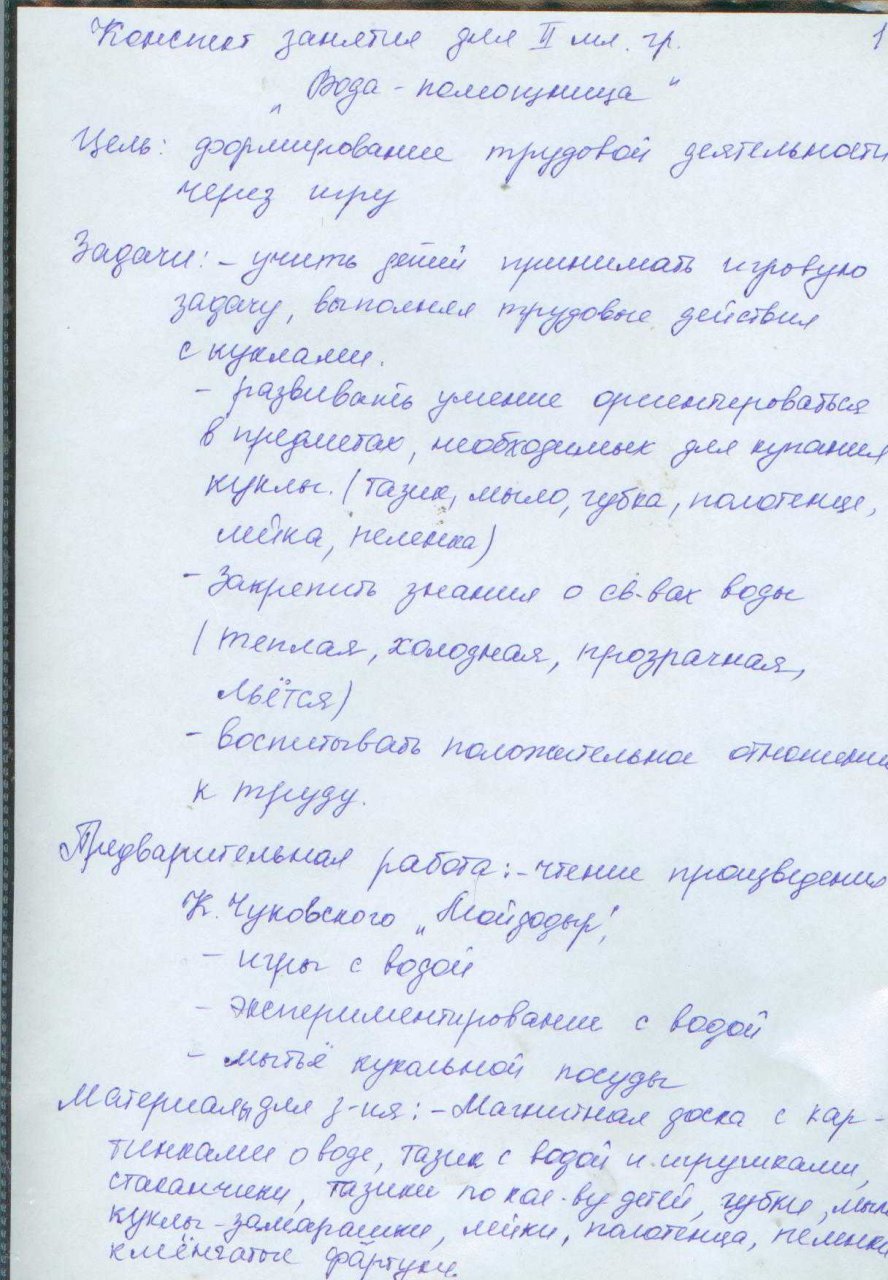 Конспект занятия для II мл. гр. 1
„Вода - помощница"
Цель: формирование трудовой деятельности
через игру
Задачи: - учить детей принимать игровую
задачу, выполняя трудовые действия
с куклами.
- развивать умение ориентироваться
в предметах, необходимых для купания
куклы. (тазик, мыло, губка, полотенце,
лейка, пеленка)
- Закрепить знания о св-вах воды
(теплая, холодная, прозрачная,
льётся)
- воспитывать положительное отношени
к труду.
Предварительная работа: - чтение произведения
К. Чуковского „Мойдодыр",
- игры с водой
- экспериментирование с водой
- мытьё кукольной посуды
Материалы для з-ия: - Магнитная доска с кар-
тинками о воде, тазик с водой и игрушками,
стаканчики, тазики по кол-ву детей, губки, мыл
куклы-замарашки, лейки, полотенца, пеленки
клеёнчатые фартуки.